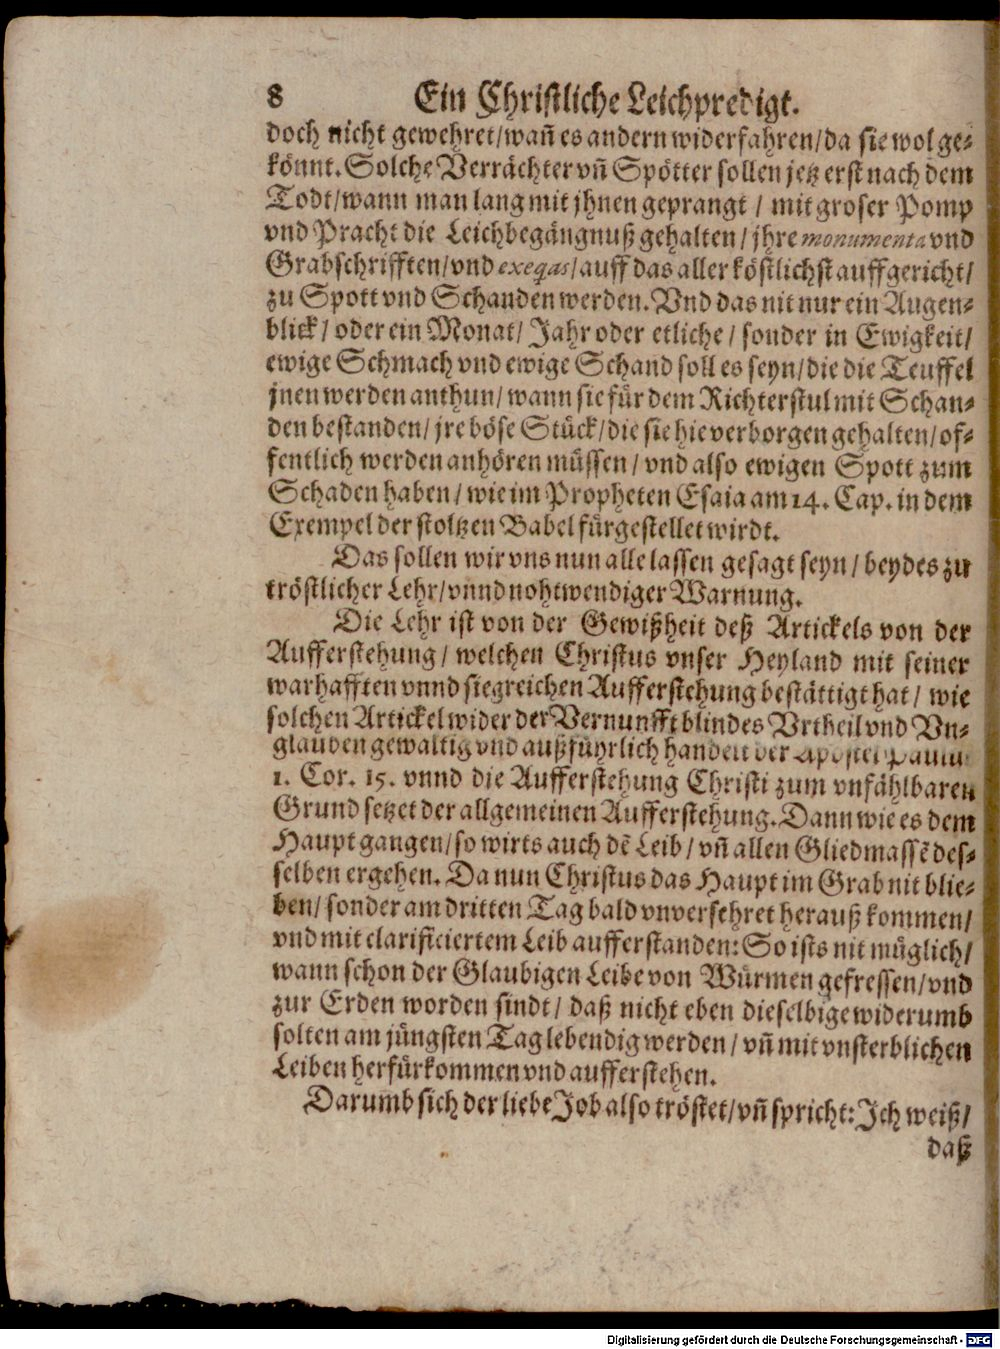 8 Ein Christliche Leichpredigt.
doch nicht gewehret/wañ es andern widerfahren/da sie wol ge-
könnt. Solche Verrächter vñ Spötter sollen jetz erst nach dem
Todt/wann man lang mit jhnen geprangt / mit groser Pomp
vnd Pracht die Leichbegängnuß gehalten/ jhre monumenta vnd
Grabschrifften/vnd exeqas/auff das aller köstlichst auffgericht/
zu Spott vnd Schanden werden. Vnd das nit nur ein Augen-
blick/ oder ein Monat/ Jahr oder etliche/ sonder in Ewigkeit/
ewige Schmach vnd ewige Schand soll es seyn/die die Teuffel
jnen werden anthun/ wann sie für dem Richterstul mit Schan-
den bestanden/ jre böse Stück/die sie hie verborgen gehalten/of-
fentlich werden anhören müssen/ vnd also ewigen Spott zum
Schaden haben/ wie im Propheten Esaia am 14. Cap. in dem
Exempel der stoltzen Babel fürgestellet wirdt.
Das sollen wir vns nun alle lassen gesagt seyn/ beydes zu
tröstlicher Lehr/vnnd nohtwendiger Warnung.
Die Lehr ist von der Gewißheit deß Artickels von der
Aufferstehung/ welchen Christus vnser Heyland mit seiner
warhafften vnnd siegreichen Aufferstehung bestättigt hat/ wie
solchen Artickel wider der Vernunfft blindes Vrtheil vnd Vn-
glauben gewaltig vnd außführlich handelt der Apostel Paulus
1. Cor. 15. vnnd die Aufferstehung Christi zum vnfählbaren
Grund setzet der allgemeinen Aufferstehung. Dann wie es dem
Haupt gangen/so wirts auch dẽ Leib/ vñ allen Gliedmassẽ des-
selben ergehen. Da nun Christus das Haupt im Grab nit blie-
ben/ sonder am dritten Tag bald vnversehret herauß kommen/
vnd mit clarificiertem Leib aufferstanden: So ists nit müglich/
wann schon der Glaubigen Leibe von Würmen gefressen/vnd
zur Erden worden sindt/ daß nicht eben dieselbige widerumb
solten am jüngsten Tag lebendig werden/ vñ mit vnsterblichen
Leiben herfürkommen vnd aufferstehen.
Darumb sich der liebe Job also tröstet/vñ spricht: Ich weiß/
daß
Digitalisierung gefördert durch die Deutsche Forschungsgemeinschaft - DFG